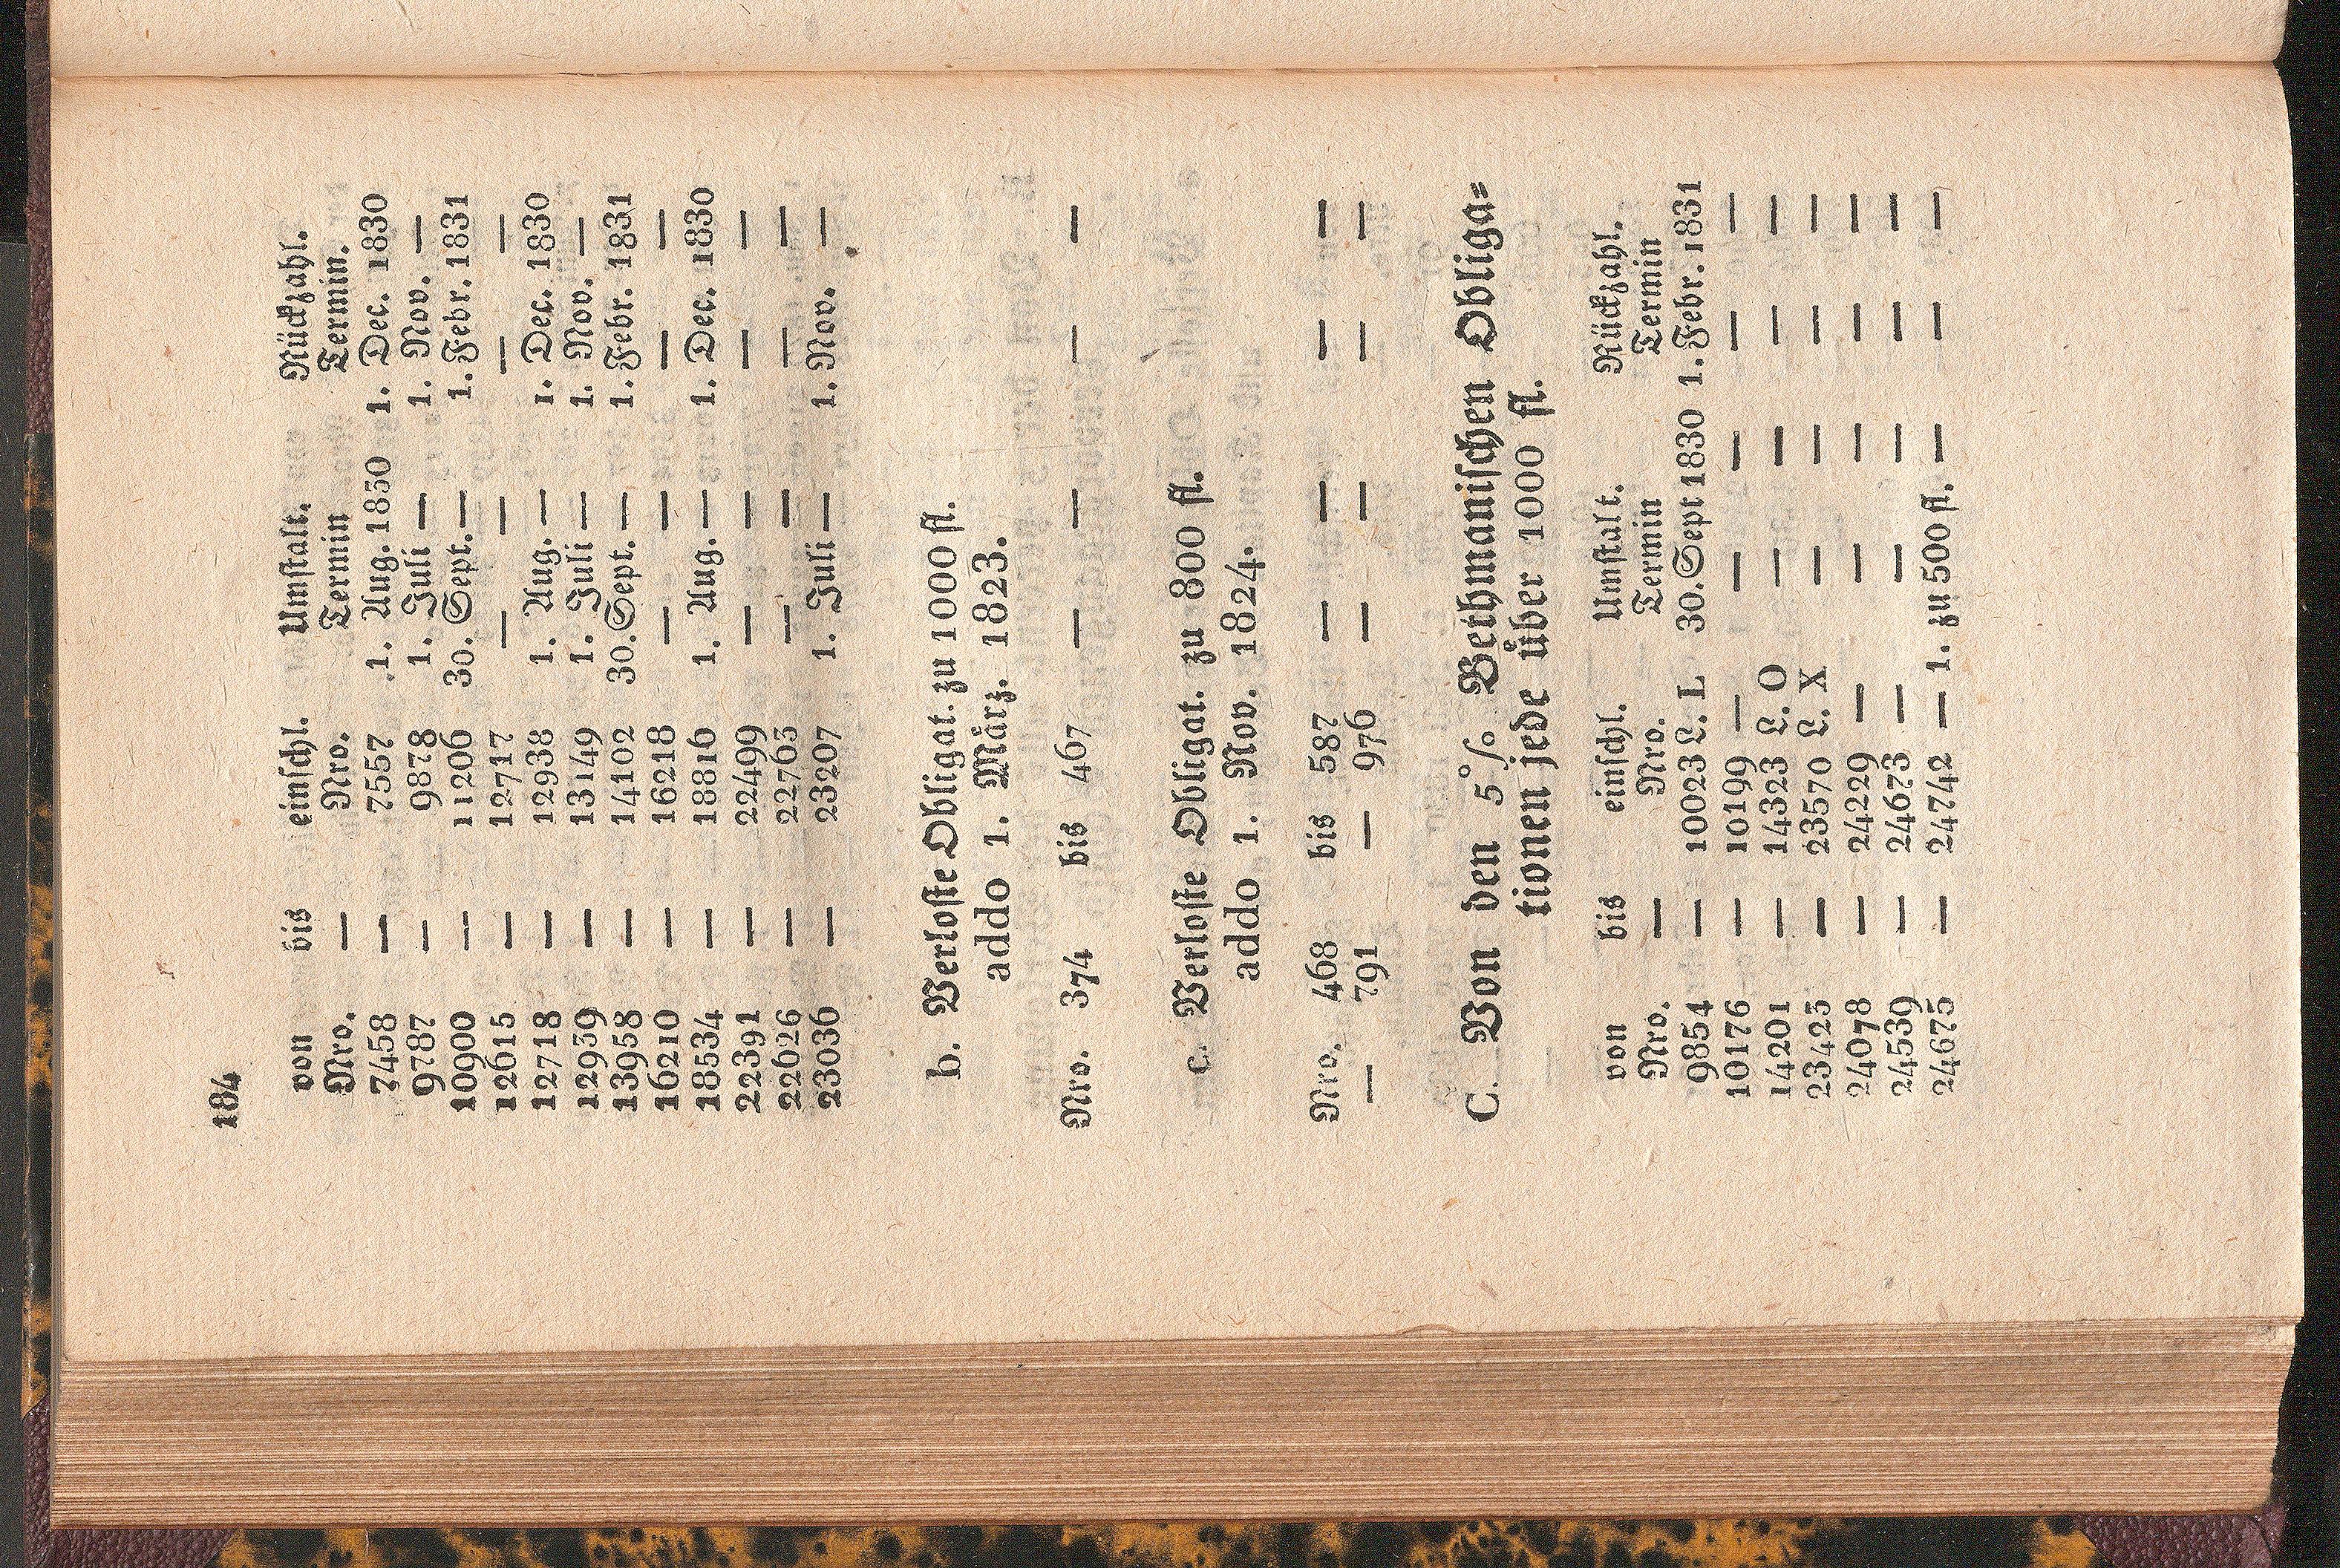 184
von bis einschl. Umstalt. Rückzahl.
Nro. — Nro. Termin Termin.
7458 — 7557 1. Aug. 1830 1. Dec. 1830
9787 — 9878 1. Juli — 1. Nov. —
10900 — 11206 30. Sept. — 1. Febr. 1831
12615 — 12717 — — — —
12718 — 12938 1. Aug. — 1. Dec. 1830
12939 — 13149 1. Juli — 1. Nov. —
13958 — 14102 30. Sept. — 1. Febr. 1831
16210 — 16218 — — — —
18534 — 18816 1. Aug. — 1. Dec. 1830
22391 — 22499 — — — —
22626 — 22763 — — — —
23036 — 23207 1. Juli — 1. Nov. —
b. Verloste Obligat. zu 1000 fl.
addo 1. März. 1823.
Nro. 374 bis 467 — — — —
c. Verloste Obligat. zu 800 fl.
addo 1. Nov. 1824.
Nro. 468 bis 587 — — — —
— 791 — 976 — — — —
C. Von den 5% Bethmanischen Obliga⸗
tionen jede über 1000 fl.
von bis einschl. Umstalt. Rückzahl.
Nro. — Nro. Termin Termin
9854 — 10023 L. L 30. Sept 1830 1. Febr. 1831
10176 — 10199 — — — — —
14201 — 14323 L. O — — — —
23423 — 23570 L. X — — — —
24078 — 24229 — — — — —
24539 — 24673 — — — — —
24675 — 24742 — 1. zu 500 fl. — — —